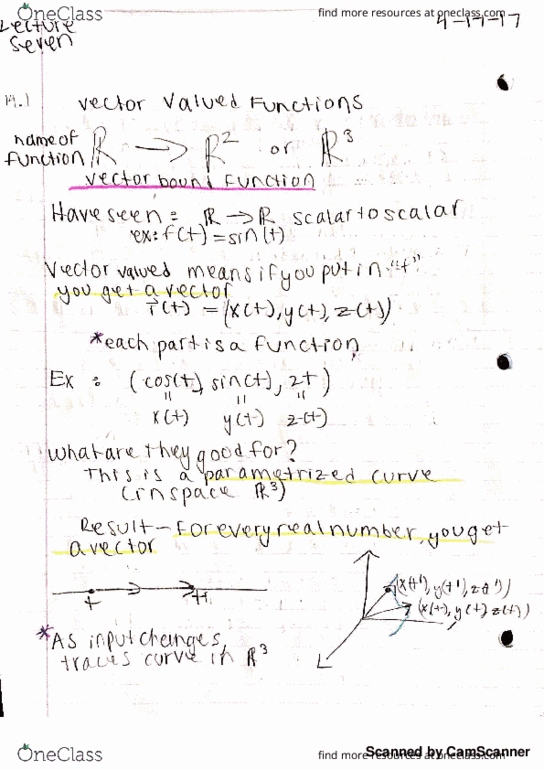 OneClass
find more resources at oneclass.com
Lecture
Seven
4-17-17
14.1) Vector Valued Functions
name of
function ℝ → ℝ² or ℝ³
vector bound function
Have seen: ℝ → ℝ scalar to scalar
ex: f(t) = sin(t)
Vector valued means if you put in "t"
you get a vector
r⃗(t) = (x(t), y(t), z(t))
*each part is a function
Ex : (cos(t), sin(t), 2t)
॥ ॥ ॥
x(t) y(t) z(t)
what are they good for?
This is a parametrized curve
(in space ℝ³)
Result - For every real number, you get
a vector
(x(t'), y(t'), z(t'))
(x(t), y(t), z(t))
t
*As input changes,
traces curve in ℝ³
Scanned by CamScanner
OneClass
find more resources at oneclass.com